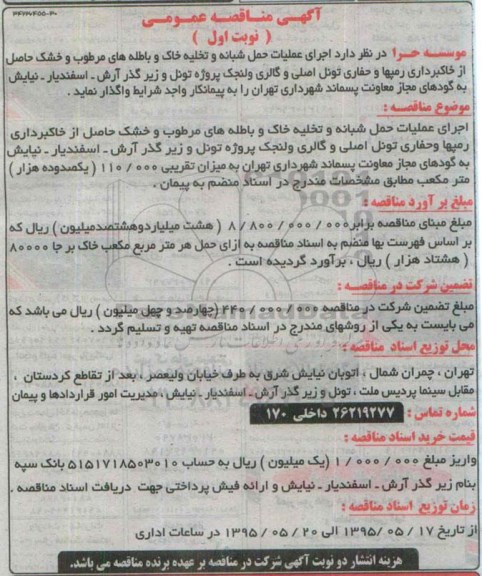 ۳۴۲۲۰۴۵۵-۳۰
آگهی مناقصه عمومی
( نوبت اول )
موسسه حرا در نظر دارد اجرای عملیات حمل شبانه و تخلیه خاک و باطله های مرطوب و خشک حاصل
از خاکبرداری رمپها و حفاری تونل اصلی و گالری ولنجک پروژه تونل و زیر گذر آرش - اسفندیار - نیایش
به گودهای مجاز معاونت پسماند شهرداری تهران را به پیمانکار واجد شرایط واگذار نماید .
موضوع مناقصه :
اجرای عملیات حمل شبانه و تخلیه خاک و باطله های مرطوب و خشک حاصل از خاکبرداری
رمپها وحفاری تونل اصلی و گالری ولنجک پروژه تونل و زیر گذر آرش - اسفندیار - نیایش
به گودهای مجاز معاونت پسماند شهرداری تهران به میزان تقریبی ۱۱۰/۰۰۰ ( یکصدوده هزار )
متر مکعب مطابق مشخصات مندرج در اسناد منضم به پیمان .
مبلغ بر آورد مناقصه :
مبلغ مبنای مناقصه برابر ۸/۸۰۰/۰۰۰/۰۰۰ ( هشت میلیاردوهشتصدمیلیون ) ریال که
بر اساس فهرست بها منضم به اسناد مناقصه به ازای حمل هر متر مربع مکعب خاک بر جا ۸۰۰۰۰
( هشتاد هزار ) ریال ، برآورد گردیده است .
تضمین شرکت در مناقصه :
مبلغ تضمین شرکت در مناقصه ۴۴۰/۰۰۰/۰۰۰ (چهارصد و چهل میلیون ) ریال می باشد که
می بایست به یکی از روشهای مندرج در اسناد مناقصه تهیه و تسلیم گردد .
محل توزیع اسناد مناقصه :
تهران ، چمران شمال ، اتوبان نیایش شرق به طرف خیابان ولیعصر ، بعد از تقاطع کردستان ،
مقابل سینما پردیس ملت ، تونل و زیر گذر آرش - اسفندیار - نیایش ، مدیریت امور قراردادها و پیمان
شماره تماس : ۲۶۲۱۹۲۷۷ داخلی ۱۷۰
قیمت خرید اسناد مناقصه :
واریز مبلغ ۱/۰۰۰/۰۰۰ (یک میلیون ) ریال به حساب ۵۱۵۱۷۱۸۵۰۳۰۱۰ بانک سپه
بنام زیر گذر آرش - اسفندیار - نیایش و ارائه فیش پرداختی جهت دریافت اسناد مناقصه .
زمان توزیع اسناد مناقصه :
از تاریخ ۱۷ / ۰۵ / ۱۳۹۵ الی ۲۰ / ۰۵ / ۱۳۹۵ در ساعات اداری
هزینه انتشار دو نوبت آگهی شرکت در مناقصه بر عهده برنده مناقصه می باشد.